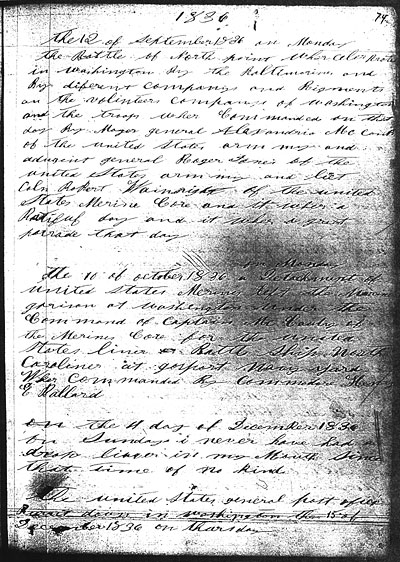 1836
74
the 12 of September 1836 on Monday
the Battle of North point wher Celer Brated
in Washington By the Baltimorians and
By diferent Companys and Rigments
on the volinteers Companys of Washington
and the troops wher Commanded on that
day By Mager general Alexandria Mc Comb
of the united States arm my and
adugient general Roger Jones of the
united States arm my and
Coln Robert Wainright of the united
States Merine Core and it wher a
day and it wher a great
parade that day
on Monday
the 10 of october 1836 a Detachament of
united States Merines left the Marine
garison at Washington under the
Command of Captain Mc Cauley of
the Merines Core for the united
States liner Battle Ship North
Caroliner at gosport Navy yard
Wher Commanded By Commodore Henry
E Ballard
on the 4 day of December 1836
on Sunday i never have had a
drop liccer in my Mouth Since
that time of no kind
the united States general post office
Burnt down in Washington the 15 of
December 1836 on thursday